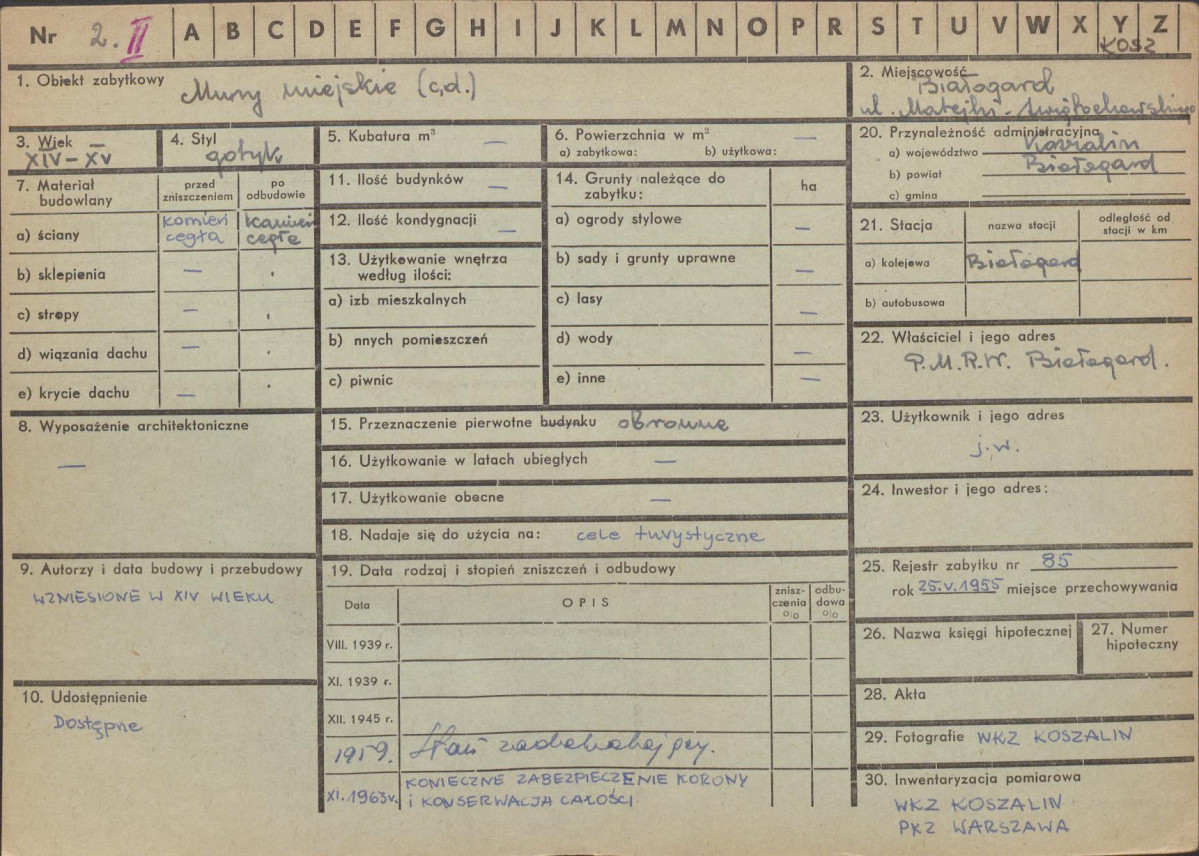 Nr 2. II A B C D E F G H I J K L M N O P R S T U V W X Y Z
KOSZ
1. Obiekt zabytkowy Mury miejskie (c.d.)
2. Miejscowość Białogard
ul. Matejki - Świętochowskiego
3. Wiek XIV – XV
4. Styl gotyk
5. Kubatura m³ —
6. Powierzchnia w m² —
a) zabytkowa: b) użytkowa:
7. Materiał budowlany
przed zniszczeniem
po odbudowie
a) ściany kamień cegła kamień cegła
b) sklepienia —
c) stropy —
d) wiązania dachu —
e) krycie dachu —
8. Wyposażenie architektoniczne
—
9. Autorzy i data budowy i przebudowy
WZNIESIONE W XIV WIEKU
10. Udostępnienie
DOSTĘPNE
11. Ilość budynków —
12. Ilość kondygnacji —
13. Użytkowanie wnętrza
według ilości:
a) izb mieszkalnych
b) nnych pomieszczeń
c) piwnic
14. Grunty należące do
zabytku: ha
a) ogrody stylowe —
b) sady i grunty uprawne —
c) lasy —
d) wody —
e) inne —
15. Przeznaczenie pierwotne budynku obronne
16. Użytkowanie w latach ubiegłych —
17. Użytkowanie obecne —
18. Nadaje się do użycia na: cele turystyczne
19. Data rodzaj i stopień zniszczeń i odbudowy
Data OPIS znisz-czenia % odbu-dowa %
VIII. 1939 r.
XI. 1939 r.
XII. 1945 r.
1959. Stan zadowalający.
XI. 1963 r. KONIECZNE ZABEZPIECZENIE KORONY
I KONSERWACJA CAŁOŚCI
20. Przynależność administracyjna
a) województwo Koszalin
b) powiat Białogard
c) gmina
21. Stacja nazwa stacji odległość od stacji w km
a) kolejowa Białogard
b) autobusowa
22. Właściciel i jego adres
P.M.R.N. Białogard.
23. Użytkownik i jego adres
j.w.
24. Inwestor i jego adres:
25. Rejestr zabytku nr 85
rok 25.V.1955 miejsce przechowywania
26. Nazwa księgi hipotecznej
27. Numer hipoteczny
28. Akta
29. Fotografie WKZ KOSZALIN
30. Inwentaryzacja pomiarowa
WKZ KOSZALIN
PKZ WARSZAWA